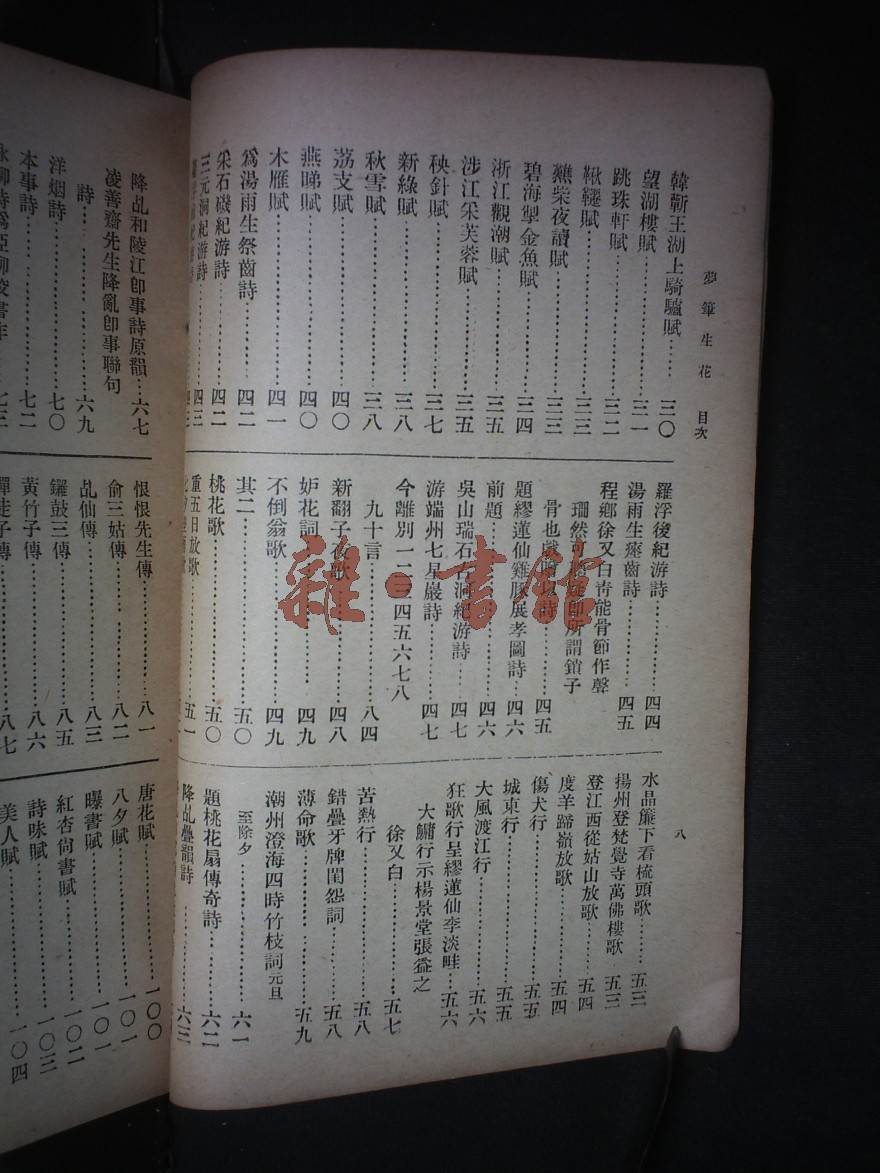 夢筆生花 目次
八
韓蘄王湖上騎驢賦……三〇
望湖樓賦……三一
跳珠軒賦……三二
鞦韆賦……三三
爇柴夜讀賦……三三
碧海掣金魚賦……三四
浙江觀潮賦……三五
涉江采芙蓉賦……三五
秧針賦……三七
新綠賦……三八
秋雪賦……三八
荔支賦……四〇
燕睇賦……四〇
木雁賦……四一
爲湯雨生祭齒詩……四二
采石磯紀游詩……四二
三元洞紀游詩……四三
羅浮後紀游詩……四四
湯雨生瘞齒詩……四五
程鄉徐又白靑能骨節作聲
珊然可聽疑卽所謂鎖子
骨也戲贈以詩……四五
題繆蓮仙雞豚展孝圖詩……四六
前題……四六
吳山瑞石古洞紀游詩……四七
游端州七星巖詩……四七
今離別一二三四五六七八
九十言……八四
新翻子夜歌……四八
妒花詞……四九
不倒翁歌……四九
其二……五〇
桃花歌……五〇
重五日放歌……五一
水晶簾下看梳頭歌……五三
揚州登梵覺寺萬佛樓歌……五三
登江西從姑山放歌……五四
度羊蹄嶺放歌……五四
傷犬行……五五
城東行……五五
大風渡江行……五六
狂歌行呈繆蓮仙李淡畦……五六
大鱅行示楊景堂張益之
徐又白……五七
苦熱行……五八
錯疊牙牌閨怨詞……五八
薄命歌……五九
潮州澄海四時竹枝詞元旦
至除夕……六一
題桃花扇傳奇詩……六二
降乩疊韻詩……六三
降乩和陵江卽事詩原韻……六七
凌善齋先生降亂卽事聯句
詩……六九
洋烟詩……七〇
本事詩……七二
恨恨先生傳……八一
俞三姑傳……八二
乩仙傳……八三
鑼鼓三傳……八五
黃竹子傳……八六
唐花賦……一〇〇
八夕賦……一〇一
曝書賦……一〇一
紅杏尙書賦……一〇二
詩味賦……一〇三
美人賦……一〇四
雜·書館